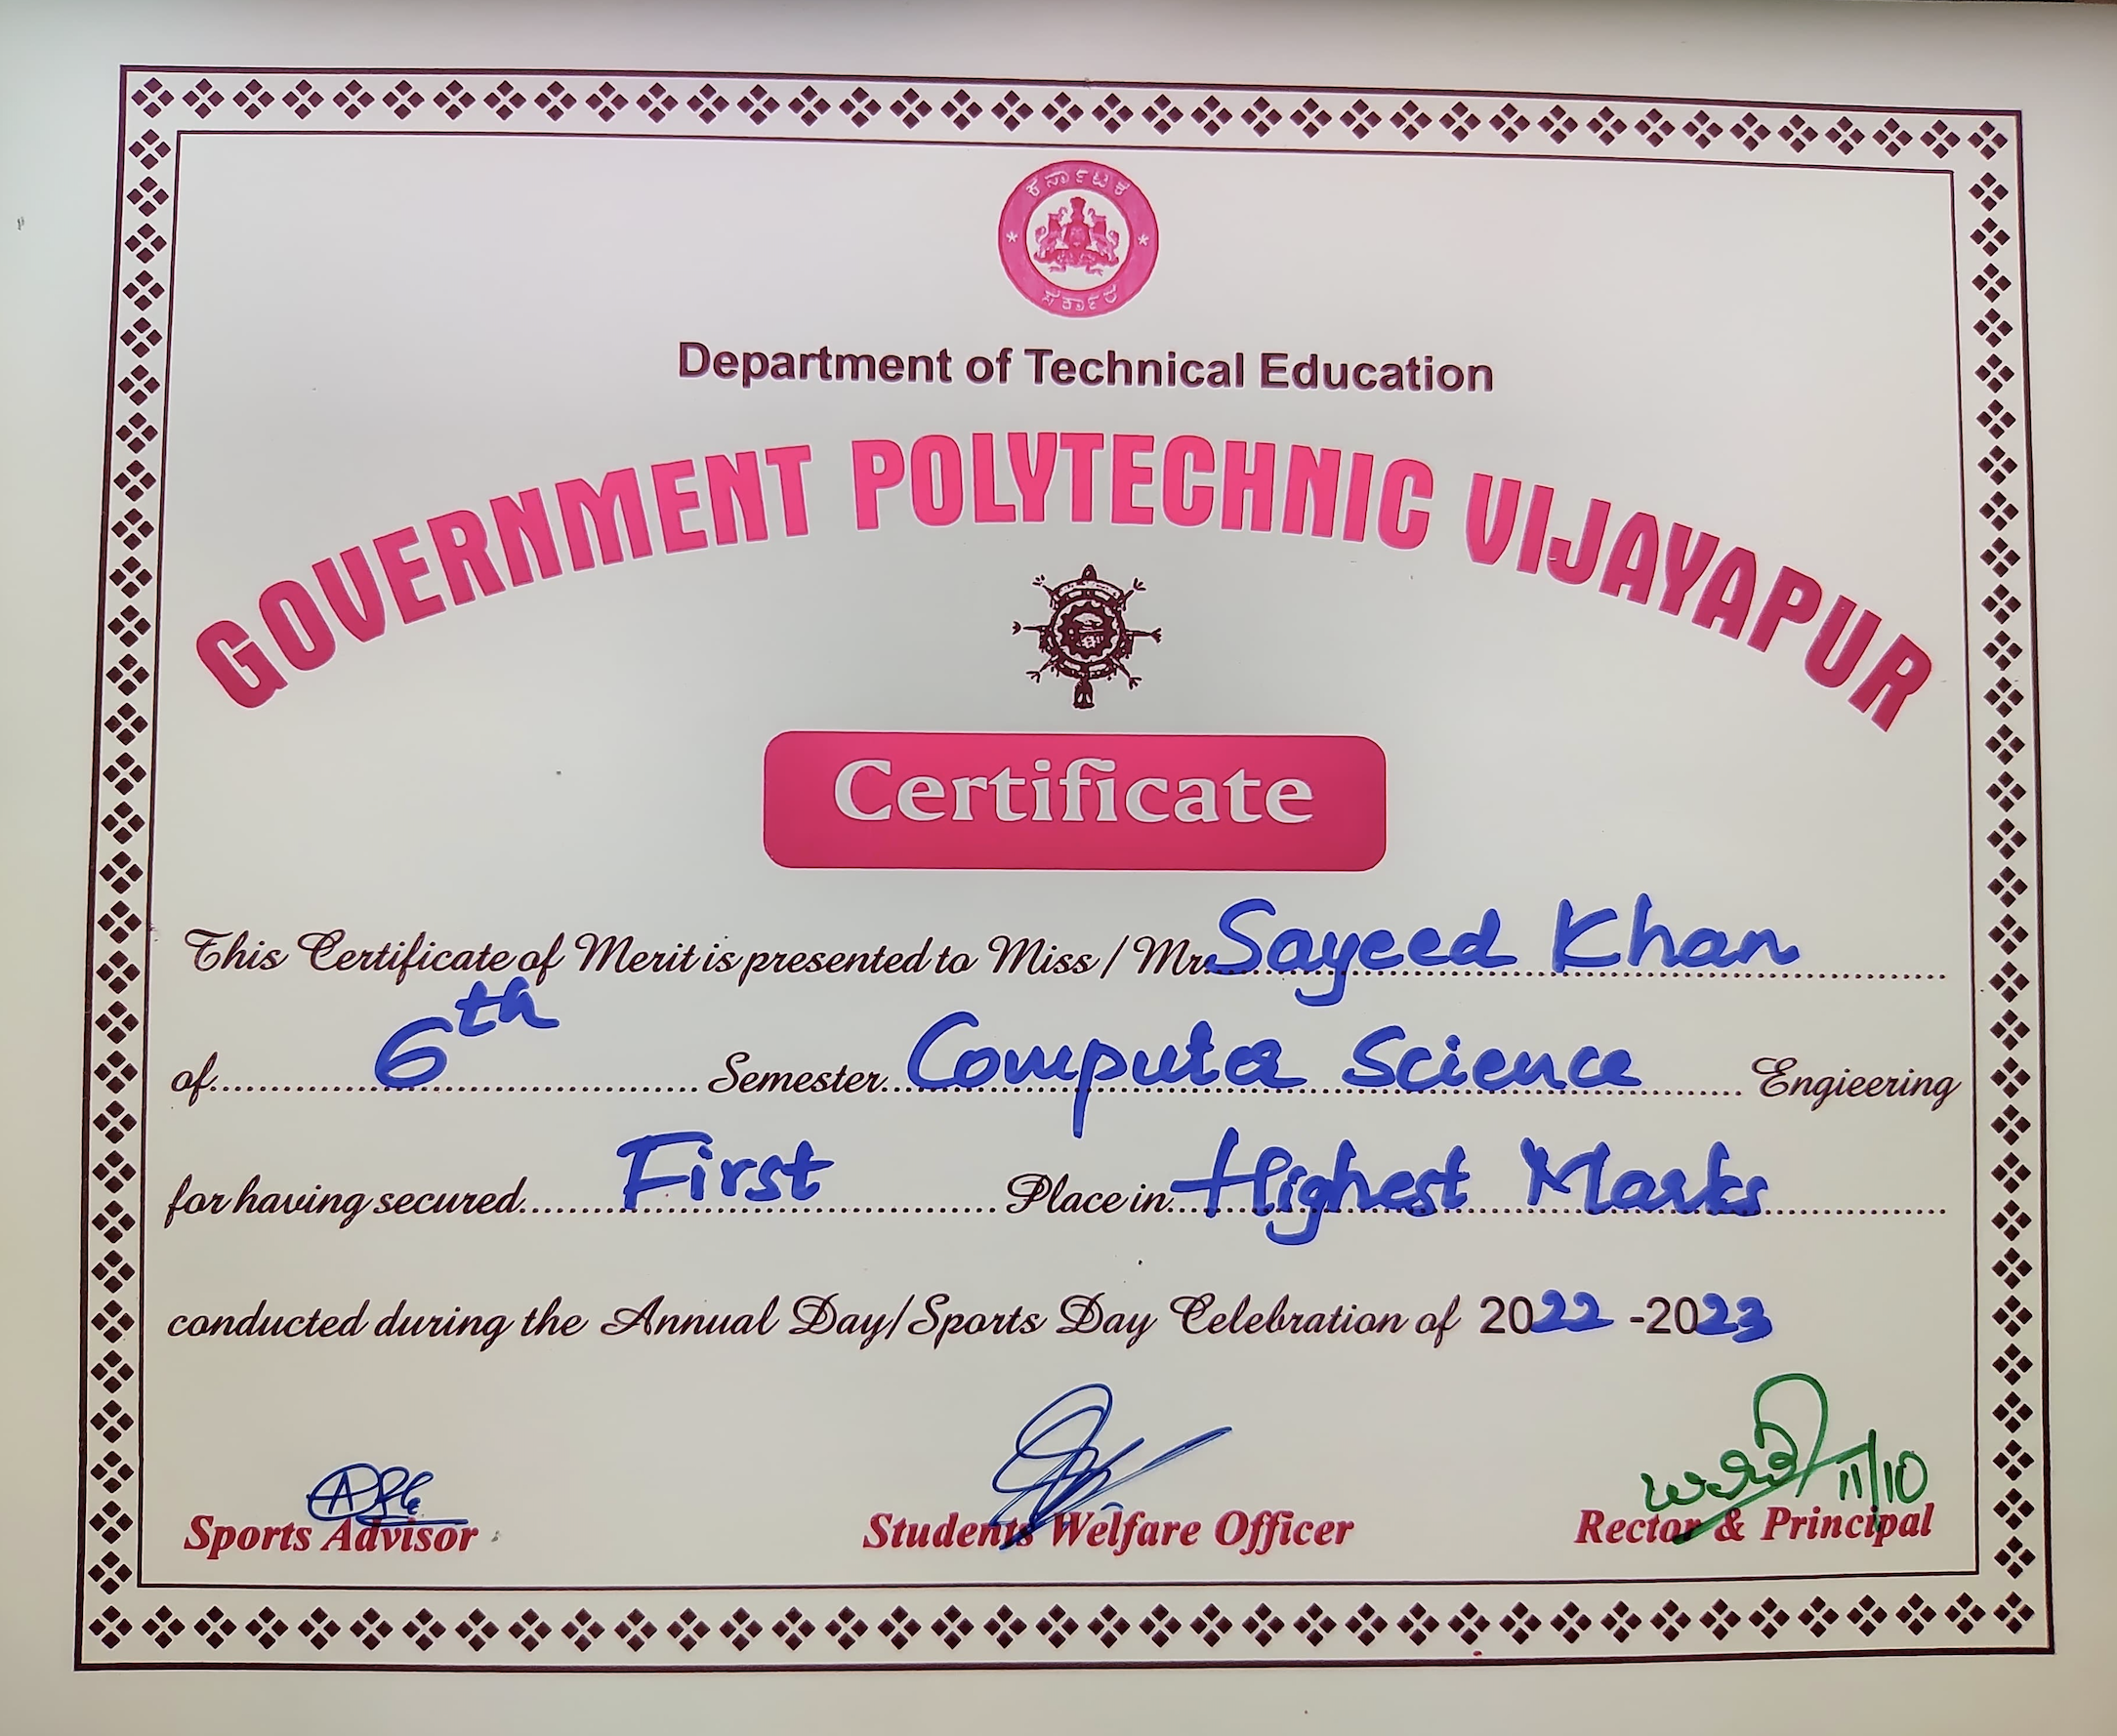 ಕರ್ನಾಟಕ
ಸರ್ಕಾರ
Department of Technical Education
GOVERNMENT POLYTECHNIC VIJAYAPUR
Certificate
This Certificate of Merit is presented to Miss / Mr. Sayeed Khan
of 6th Semester Computer Science Engieering
for having secured First Place in Highest Marks
conducted during the Annual Day/Sports Day Celebration of 2022 -2023
11/10
Sports Advisor Students Welfare Officer Rector & Principal